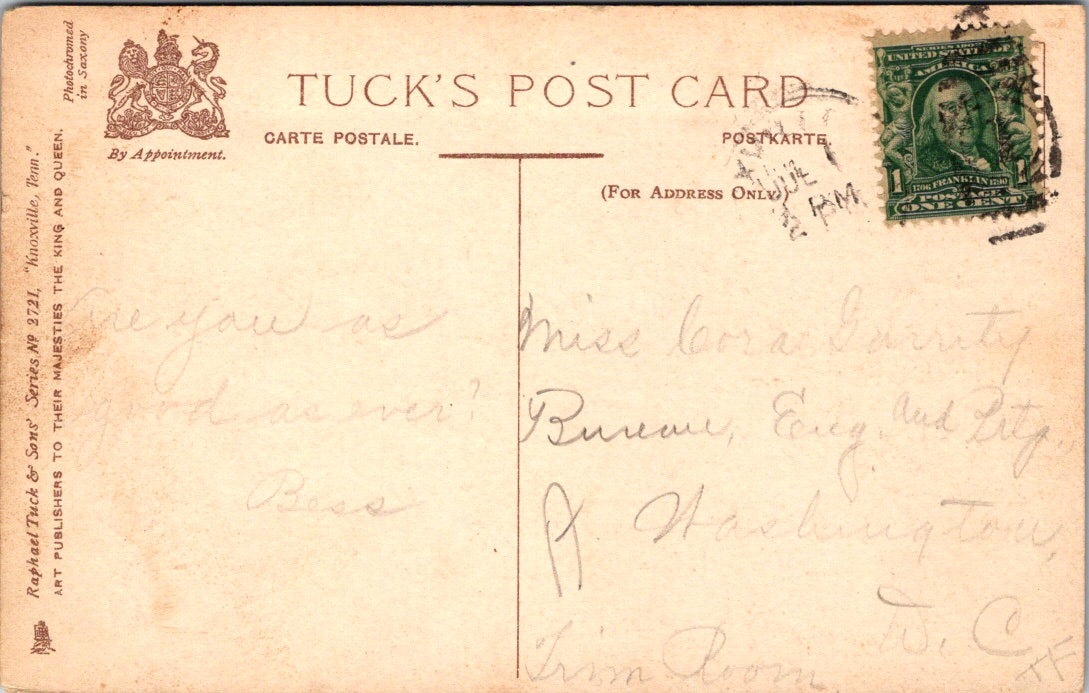 Photochromed
in Saxony
By Appointment.
TUCK'S POST CARD
CARTE POSTALE.
POSTKARTE.
(FOR ADDRESS ONLY.)
SERIES 1902
UNITED STATES OF
AMERICA
1
1706 FRANKLIN 1790
1
POSTAGE
ONE CENT
Raphael Tuck & Sons' Series, No 2721, "Knoxville, Tenn."
ART PUBLISHERS TO THEIR MAJESTIES THE KING AND QUEEN.
Are you as
good as ever?
Bess
Miss Cora Garrity
Bureau, Eng. and Prtg.,
Washington,
D.C.
Trim Room